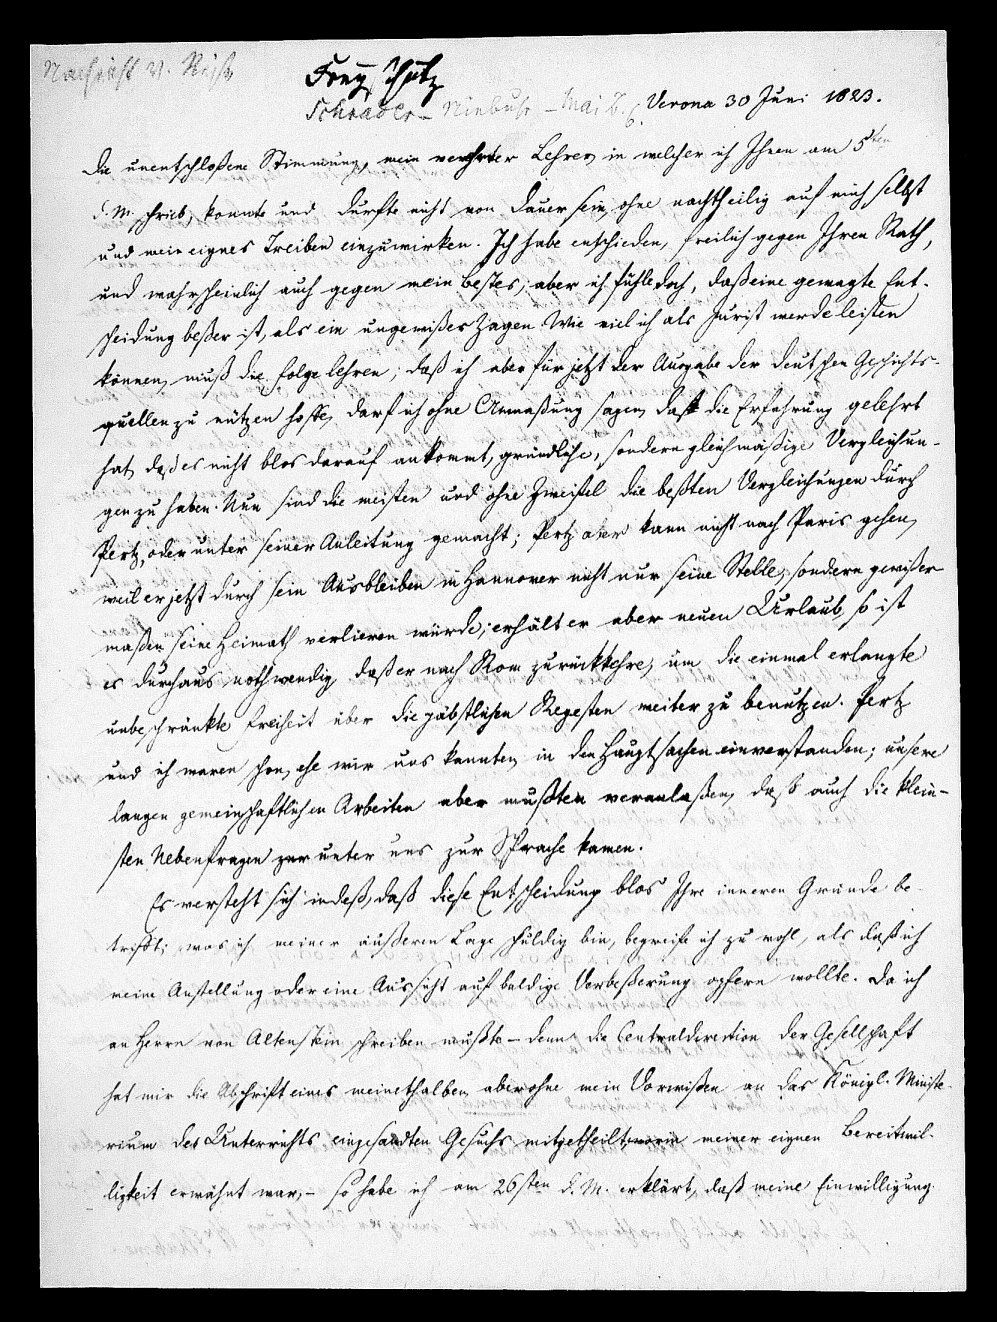 Nachricht v. Reise
Franz Schulz
Schrader – Niebuhr – Mai Z. 6. Verona 30 Juni 1823.
Die unentschloßene Stimmung, mein verehrter Lehrer, in welcher ich Ihnen am 5ten
d. M. schrieb, konnte und durfte nicht von Dauer sein, ohne nachtheilig auf mich selbst
und mein eignes Treiben einzuwirken. Ich habe entschieden, freilich gegen Ihren Rath,
und wahrscheinlich auch gegen mein Bestes; aber ich fühle doch, daß eine gewagte Ent-
scheidung beßer ist, als ein ungewißes Zagen. Wie viel ich als Jurist werde leisten
können, muß die Folge lehren; daß ich aber für jetzt der Ausgabe der deutschen Geschichts-
quellen zu nützen hoffe, darf ich ohne Anmaßung sagen, da die Erfahrung gelehrt
hat, daß es nicht blos darauf ankommt, gründliche, sondern gleichmäßige Vergleichun-
gen zu haben. Nun sind die meisten und ohne Zweifel die beßten Vergleichungen durch
Pertz, oder unter seiner Anleitung gemacht; Pertz aber kann nicht nach Paris gehen,
weil er jetzt durch sein Ausbleiben in Hannover nicht nur seine Stelle, sondern gewißer
maßen seine Heimath verlieren würde; erhält er aber neuen Urlaub, so ist
es durchaus nothwendig, daß er nach Rom zurückkehre, um die einmal erlangte
unbeschränkte Freiheit über die päbstlichen Regesten weiter zu benutzen. Pertz
und ich waren schon, ehe wir uns kannten, in den Hauptsachen einverstanden; unsere
langen gemeinschaftlichen Arbeiten aber mußten veranlaßen, daß auch die klein-
sten Nebenfragen zur unter uns zur Sprache kamen.
Es versteht sich indeß, daß diese Entscheidung blos Ihre inneren Gründe be-
trifft; was ich meiner äußeren Lage schuldig bin, begreife ich zu wohl, als daß ich
meine Anstellung oder eine Aussicht auf baldige Verbeßerung opfern wollte. Da ich
an Herrn von Altenstein schreiben mußte – denn die Centraldirection der Gesellschaft
hat mir die Abschrift eines meinethalben, aber ohne mein Vorwißen an das Königl. Ministe-
rium des Unterrichts eingesandten Gesuchs mitgetheilt, worin meiner eignen Bereitwil-
ligkeit erwähnt war, – so habe ich am 26sten d. M. erklärt, daß meine Einwilligung